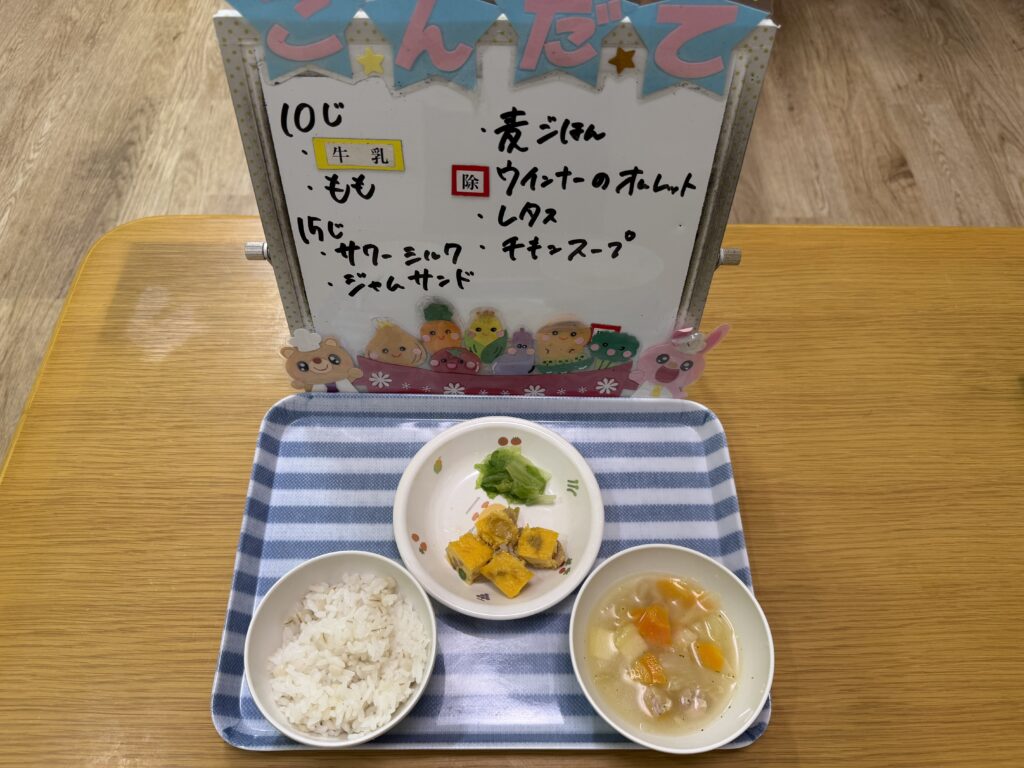 こんだて
10じ
・牛乳
・もも
15じ
・サワーミルク
・ジャムサンド
・麦ごはん
除 ウインナーのオムレット
・レタス
・チキンスープ